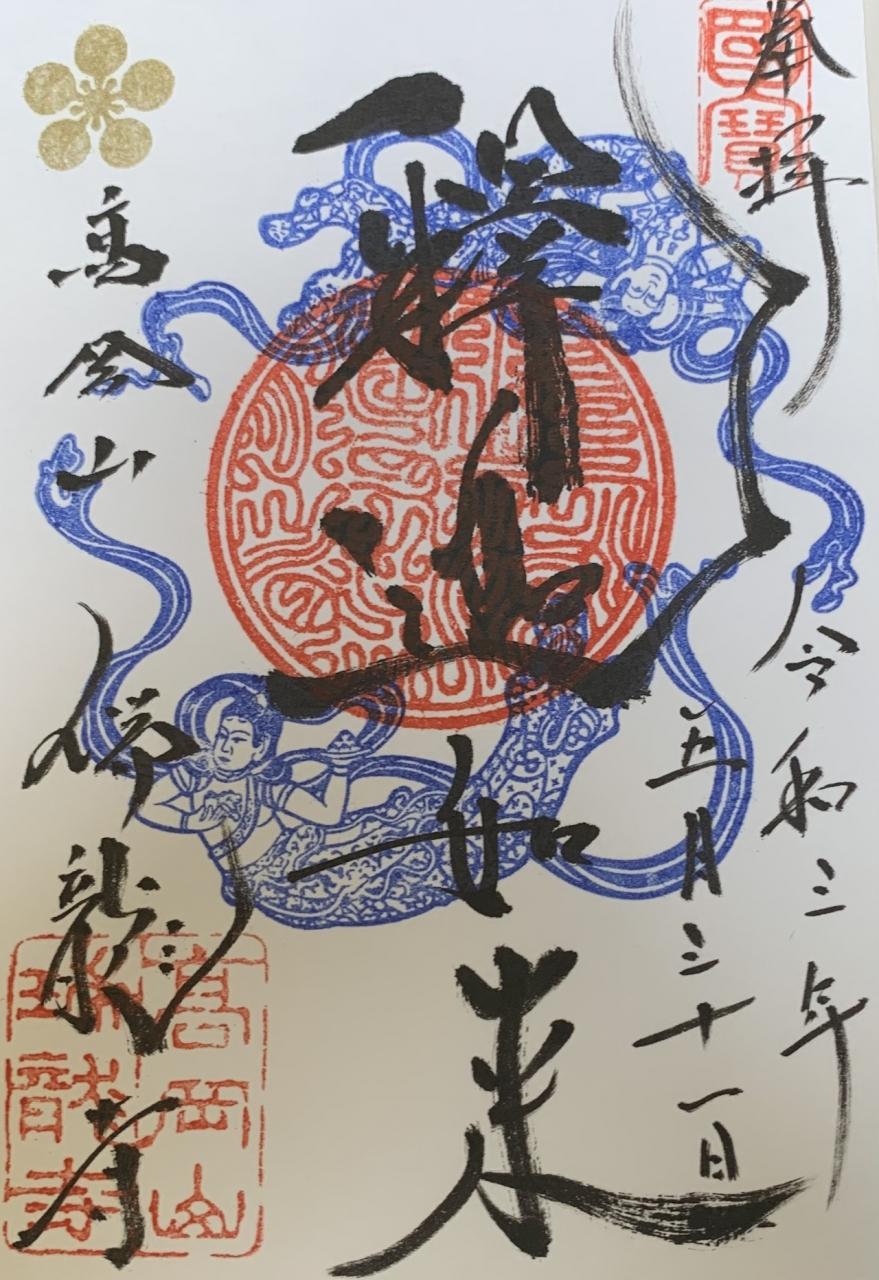 奉拝
国宝
令和三年
五月三十一日
釋迦如来
高岡山
瑞龍寺
高岡山
瑞龍寺